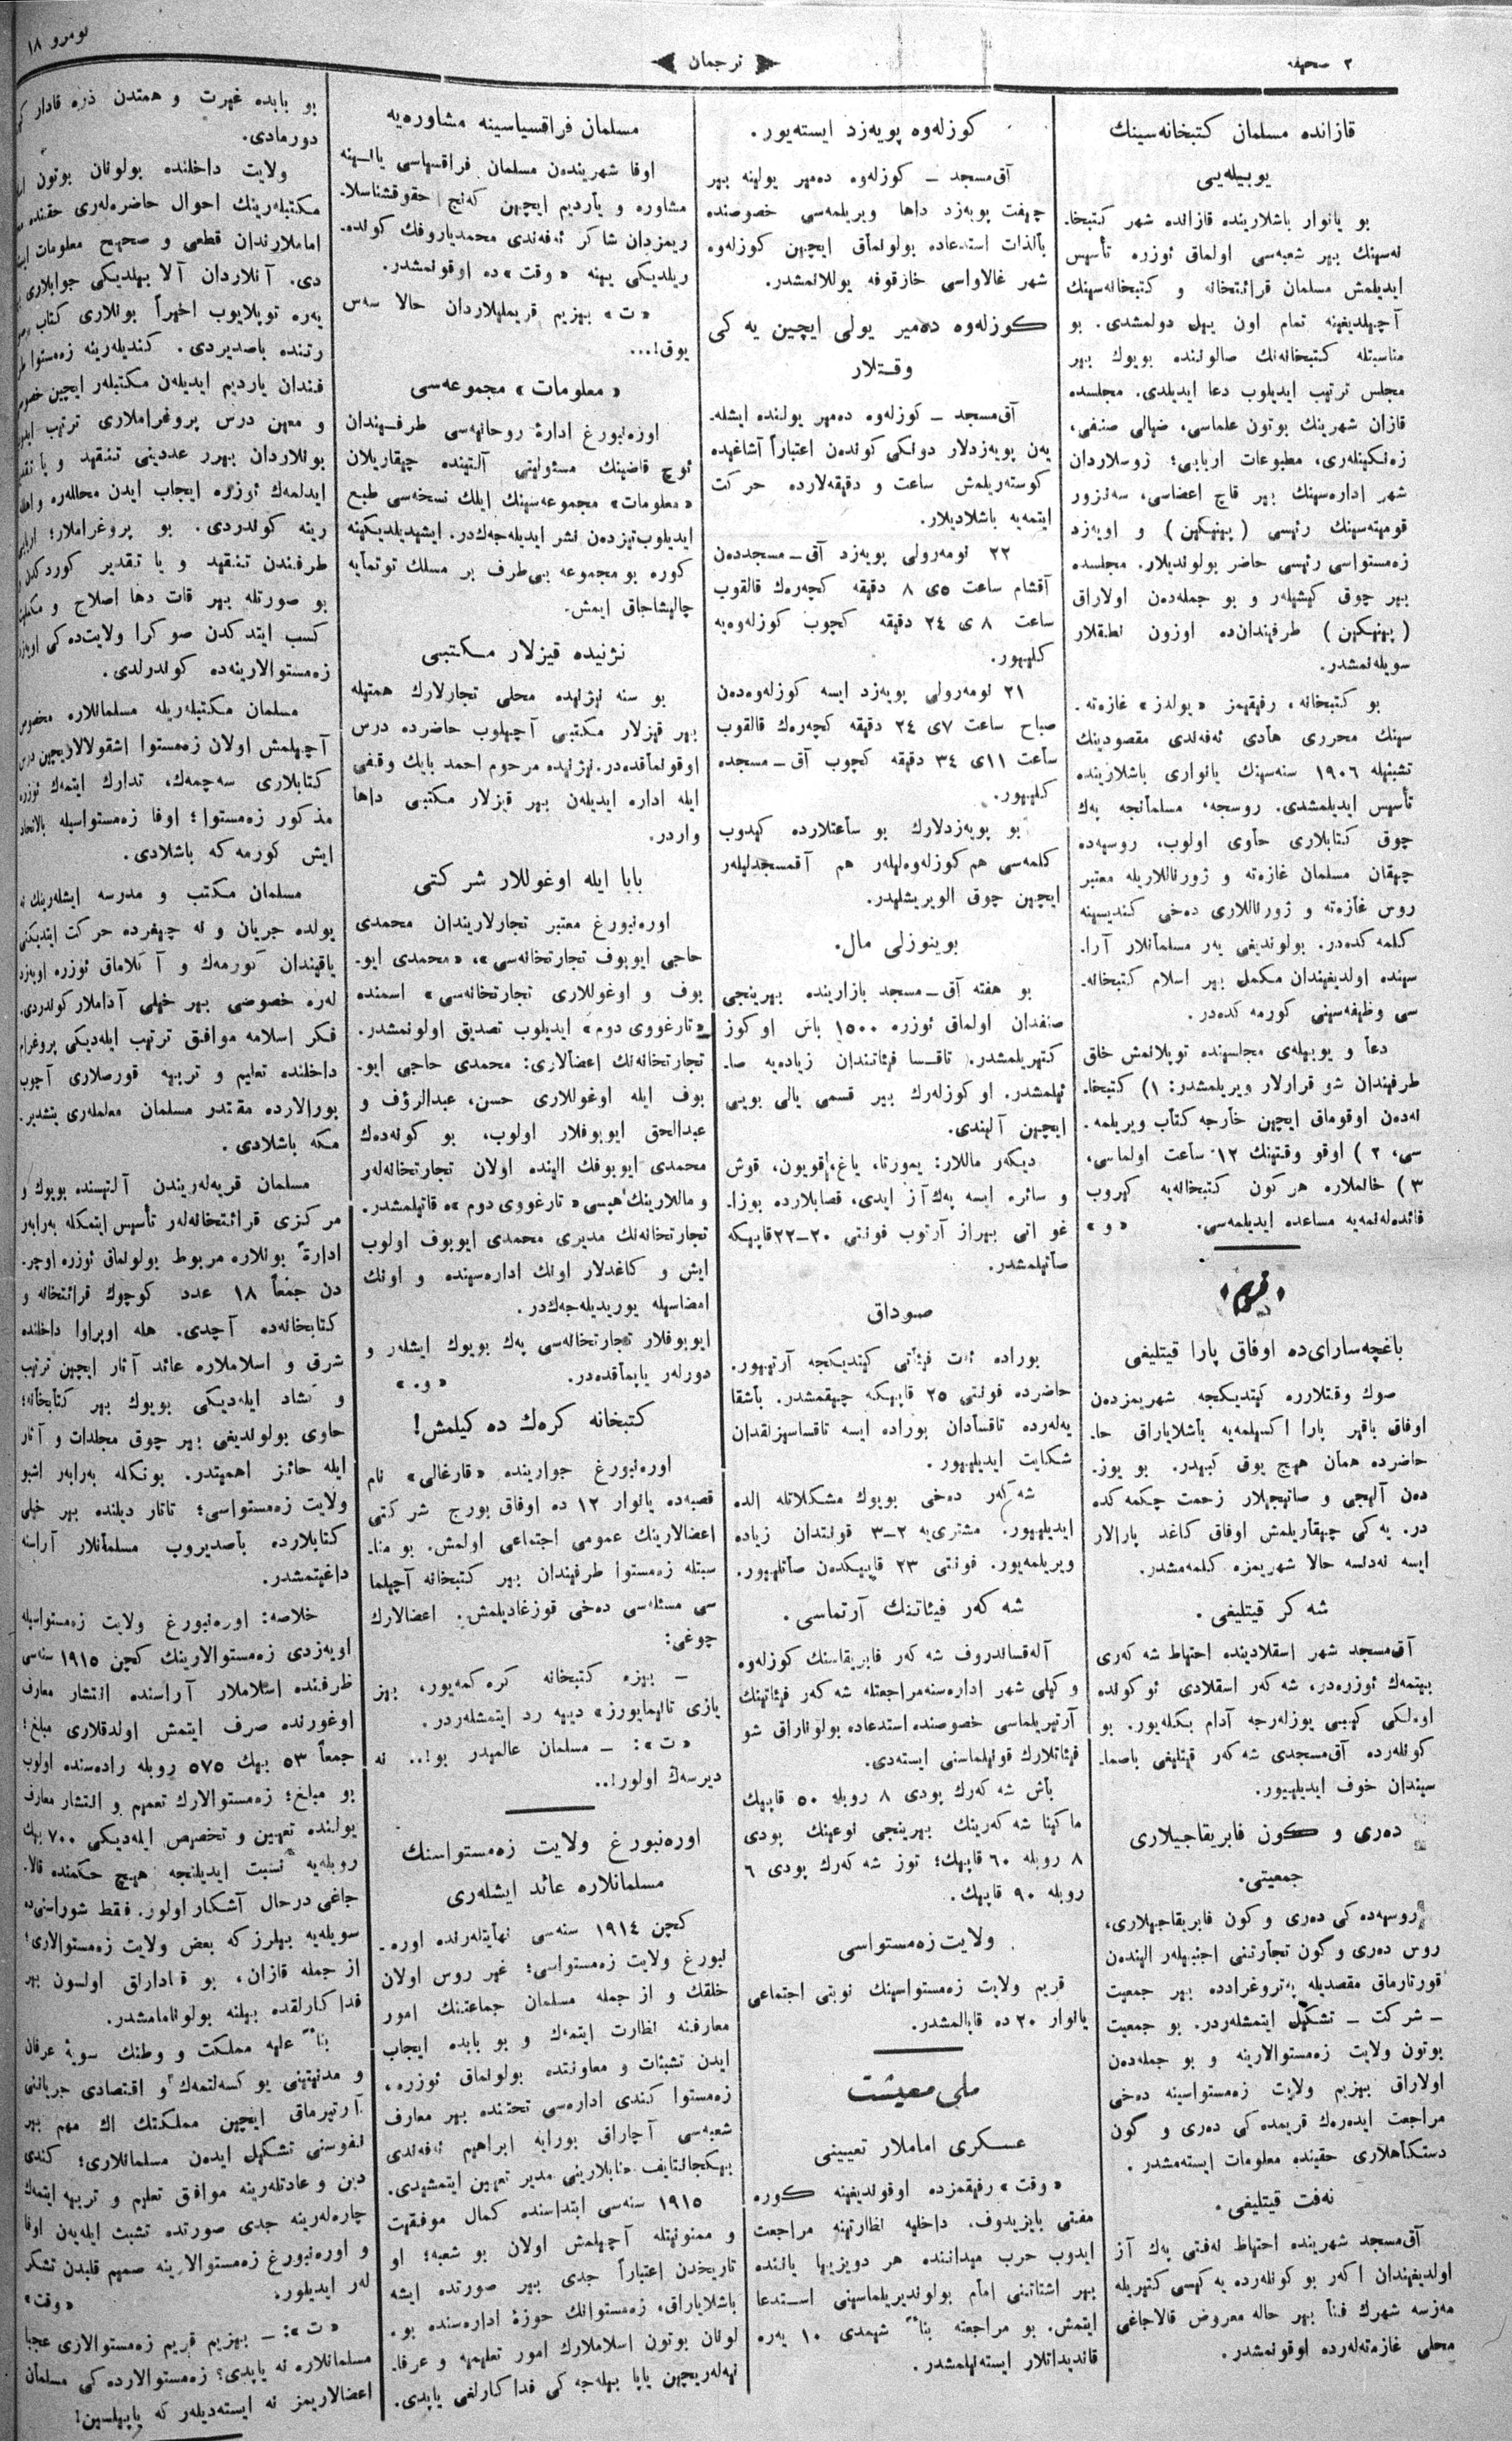 ٢ صحیفه
ترجمان
نومرو ١٨
قازانده مسلمان کتبخانه‌سینك
یوبیله‌یی
بو یانوار باشلارینده قازانده شهر کتبخا-
نه‌سینك بیر شعبه‌سی اولماق ئوزره تأسیس
ایدیلمش مسلمان قرائتخانه و کتبخانه‌سینك
آچیلدیغینه تمام اون ییل دولمشدی. بو
مناسبتله کتبخانه‌نك صالوننده بویوك بیر
مجلس ترتیب ایدیلوب دعا ایدیلدی. مجلسده
قازان شهرینك بوتون علماسی، ضیالی صنفی،
زه‌نکینله‌ری، مطبوعات اربابی؛ روسلاردان
شهر اداره‌سینك بیر قاچ اعضاسی، سه‌نزور
قومیته‌سینك رئیسی (پینیکین) و اویه‌زد
زه‌مستواسی رئیسی حاضر بولوندیلار. مجلسده
بیر چوق کیشیلر و بو جمله‌دن اولاراق
(پینیکین) طرفیندان‌ده اوزون نطقلار
سویله‌نمشدر.
بو کتبخانه، رفیقیمز «یولدز» غازه‌ته-
سینك محرری هادی ئه‌فه‌ندی مقصودینك
تشبثیله ١٩٠٦ سنه‌سینك یانواری باشلارینده
تأسیس ایدیلمشدی. روسجه، مسلمانجه پك
چوق کتابلاری حاوی اولوب، روسیه‌ده
چیقان مسلمان غازه‌ته و ژورناللاریله معتبر
روس غازه‌ته و ژورناللاری ده‌خی کندیسینه
کلمه‌کده‌در. بولوندیغی یه‌ر مسلمانلار آرا-
سینده اولدیغیندان مکمل بیر اسلام کتبخانه-
سی وظیفه‌سینی کورمه‌کده‌در.
دعا و یوبیله‌ی مجلسینده توپلانمش خلق
طرفیندان شو قرارلار ویریلمشدر: ١) کتبخا-
نه‌دن اوقوماق ایچین خارجه کتاب ویریلمه-
سی، ٢) اوقو وقتینك ١٢ ساعت اولماسی،
٣) خانملاره هر کون کتبخانه‌یه کیروب
فائده‌له‌نمه‌یه مساعده ایدیلمه‌سی. «و»
باغچه‌سارای‌ده اوفاق پارا قیتلیغی
صوك وقتلارده کیتدیکجه شهریمزده‌ن
اوفاق باقیر پارا اکسیلمه‌یه باشلایاراق حا-
حاضرده همان هیچ یوق کیبیدر. بو یوز-
ده‌ن آلیجی و صاتیجیلار زحمت چکمه‌کده
در. یه‌کی چیقاریلمش اوفاق کاغد پارالار
ایسه نه‌دنسه حالا شهریمزه کلمه‌مشدر.
شه‌کر قیتلیغی.
آق‌مسجد شهر اسقلادینده احتیاط شه‌که‌ری
بیتمه‌ك ئوزره‌در، شه‌که‌ر اسقلادی ئوکونده
اوه‌لکی کیبی یوزله‌رجه آدام بکله‌یور. بو
کونله‌رده آق‌مسجدی شه‌که‌ر قیتلیغی باصما-
سیندان خوف ایدیلیور.
ده‌ری و کون فابریقاجیلاری
جمعیتی.
روسیه‌ده‌کی ده‌ری و کون فابریقاجیلاری،
روس ده‌ری و کون تجارتنی اجنبیلر الینده‌ن
قورتارماق مقصدیله پتروغرادده بیر جمعیت
ـ شرکت ـ تشکیل ایتمشله‌ردر. بو جمعیت
بوتون ولایت زه‌مستوالارینه و بو جمله‌ده‌ن
اولاراق بیزیم ولایت زه‌مستواسینه ده‌خی
مراجعت ایده‌رك قریمده‌کی ده‌ری و کون
دستگاهلاری حقینده معلومات ایسته‌مشدر.
نه‌فت قیتلیغی.
آق‌مسجد شهرینده احتیاط نه‌فتی پك آز
اولدیغیندان اکه‌ر بو کونله‌رده یه‌کیسی کتیریله
مه‌زسه شهرك فنا بیر حاله معروض قالاجاغی
محلی غازه‌ته‌له‌رده اوقونمشدر.
کوزله‌وه پویه‌زد ایسته‌یور.
آق‌مسجد ـ کوزله‌وه ده‌میر یولینه بیر
چیفت پویه‌زد داها ویریلمه‌سی خصوصنده
بالذات استدعاده بولونماق ایچین کوزله‌وه
شهر غالاواسی خازقوفه یوللانمشدر.
کوزله‌وه ده‌میر یولی ایچین یه‌کی
وقتلار
آق‌مسجد ـ کوزله‌وه ده‌میر یولنده ایشله-
یه‌ن پویه‌زدلار دونکی کونده‌ن اعتباراً آشاغیده
کوسته‌ریلمش ساعت و دقیقه‌لارده حرکت
ایتمه‌یه باشلادیلار.
٢٢ نومه‌رولی پویه‌زد آق‌ـ‌مسجدده‌ن
آقشام ساعت ٥ی ٨ دقیقه کچه‌رك قالقوب
ساعت ٨ی ٢٤ دقیقه کچوب کوزله‌وه‌یه
کلیور.
٢١ نومه‌رولی پویه‌زد ایسه کوزله‌وه‌ده‌ن
صباح ساعت ٧ی ٢٤ دقیقه کچه‌رك قالقوب
ساعت ١١ی ٣٤ دقیقه کچوب آق‌ـ‌مسجده
کلیور.
بو پویه‌زدلارك بو ساعتلارده کیدوب
کلمه‌سی هم کوزله‌وه‌لیلر هم آقمسجدلیلر
ایچین چوق الویریشلیدر.
بوینوزلی مال.
بو هفته آق‌ـ‌مسجد بازارینده بیرینجی
صنفدان اولماق ئوزره ١٥٠٠ باش اوکوز
کتیریلمشدر. تاقسا فیئاتندان زیاده‌یه صا-
تیلمشدر. اوکوزله‌رك بیر قسمی یالی بویی
ایچین آلیندی.
دیکه‌ر ماللار: یمورتا، یاغ، قویون، قوش
و سائره ایسه پك آز ایدی، قصابلارده بوزا-
غو اتی بیراز آرتوب فونتی ٢٠ـ٢٢ قاپیکه
صاتیلمشدر.
صوداق
بوراده ئت فیئاتی کیتدیکجه آرتییور.
حاضرده فونتی ٢٥ قاپیکه چیقمشدر. باشقا
یه‌له‌رده تاقسادان بوراده ایسه تاقساسیزلقدان
شکایت ایدیلیور.
شه‌که‌ر ده‌خی بویوك مشکلاتله الده
ایدیلیور. مشتری‌یه ٢ـ٣ فونتدان زیاده
ویریلمه‌یور. فونتی ٢٣ قاپیکده‌ن صاتیلیور.
شه‌که‌ر فیئاتنك آرتماسی.
آله‌قساندروف شه‌که‌ر فابریقاسنك کوزله‌وه
وکیلی شهر اداره‌سنه‌مراجعتله شه‌که‌ر فیئاتینك
آرتیریلماسی خصوصنده استدعاده بولوناراق شو
فیئاتلارك قونیلماسنی ایسته‌دی.
باش شه‌که‌رك پودی ٨ روبله ٥٠ قاپیك
ماکینا شه‌که‌رینك بیرینجی نوعینك پودی
٨ روبله ٦٠ قاپیك؛ توز شه‌که‌رك پودی ٦
روبله ٩٠ قاپیك.
ولایت زه‌مستواسی
قریم ولایت زه‌مستواسینك نوبتی اجتماعی
یانوار ٢٠ ده قاپالمشدر.
ملی معیشت
عسکری اماملار تعیینی
«وقت» رفیقمزده اوقولدیغینه کوره
مفتی بایزیدوف، داخلیه نظارتینه مراجعت
ایدوب حرب میداننده هر دویزییا یاننده
بیر اشتاتنی امام بولوندیریلماسینی استدعا
ایتمش. بو مراجعته بناً شیمدی ١٠ یه‌ره
قاندیداتلار ایسته‌نیلمشدر.
مسلمان فراقسیاسینه مشاوره‌یه
اوفا شهرینده‌ن مسلمان فراقسیاسی یانینه
مشاوره و یاردیم ایچین که‌نج حقوقشناسلا-
ریمزدان شاکر ئه‌فه‌ندی محمدیاروفك کونده-
ریلدیکی یینه «وقت»ده اوقونمشدر.
«ت» بیزیم قریملیلاردان حالا سه‌س
یوق!...
«معلومات» مجموعه‌سی
اوره‌نبورغ ادارهٔ روحانیه‌سی طرفیندان
ئوچ قاضینك مسئولیتی آلتینده چیقاریلان
«معلومات» مجموعه‌سینك ایلك نسخه‌سی طبع
ایدیلوب‌تیزده‌ن نشر ایدیله‌جه‌ك‌در. ایشیدیلدیکینه
کوره بو مجموعه بی‌طرف بر مسلك توتمایه
چالیشاجاق ایمش.
نژنیده قیزلار مکتبی
بو سنه نیژنیده محلی تجارلارك همتیله
بیر قیزلار مکتبی آچیلوب حاضرده درس
اوقونماقده‌در. نیژنیده مرحوم احمد بایك وقفی
ایله اداره ایدیله‌ن بیر قیزلار مکتبی داها
واردر.
بابا ایله اوغوللار شرکتی
اوره‌نبورغ معتبر تجارلاریندان محمدی
حاجی ایوبوف تجارتخانه‌سی»، «محمدی ایو-
بوف و اوغوللاری تجارتخانه‌سی» اسمنده
«تارغووی دوم» ایدیلوب تصدیق اولونمشدر.
تجارتخانه‌نك اعضالاری: محمدی حاجی ایو-
بوف ایله اوغوللاری حسن، عبدالرؤف و
عبدالحق ایوبوفلار اولوب، بو کونه‌ده‌ك
محمدی ایوبوفك الینده اولان تجارتخانه‌له‌ر
و ماللارینك هپسی «تارغووی دوم»ه قاتیلمشدر.
تجارتخانه‌نك مدیری محمدی ایوبوف اولوب
ایش و کاغدلار اونك اداره‌سینده و اونك
امضاسیله یوریدیله‌جه‌ك‌در.
ایوبوفلار تجارتخانه‌سی پك بویوك ایشلر و
دورله‌ر یاپماقده‌در. «و.»
کتبخانه کره‌ك ده‌کیلمش!
اوره‌نبورغ جوارینده «قارغالی» نام
قصبه‌ده یانوار ١٢ ده اوفاق بورج شرکتی
اعضالارینك عمومی اجتماعی اولمش. بو منا-
سبتله زه‌مستوا طرفیندان بیر کتبخانه آچیلما
سی مسئله‌سی ده‌خی قوزغادیلمش. اعضالارك
چوغی:
ـ بیزه کتبخانه کره‌کمه‌یور، بیز
یازی تانیمایورز» دییه رد ایتمشله‌ردر.
«ت»: ـ مسلمان عالمیدر بو!.. نه
دیرسه‌ك اولور!..
اوره‌نبورغ ولایت زه‌مستواسنك
مسلمانلاره عائد ایشله‌ری
کچن ١٩١٤ سنه‌سی نهایتله‌رنده اوره-
نبورغ ولایت زه‌مستواسی؛ غیر روس اولان
خلقك و از جمله مسلمان جماعتنك امور
معارفنه نظارت ایتمه‌ك و بو بابده ایجاب
ایدن تشبثات و معاونتده بولونماق ئوزره،
زه‌مستوا کندی اداره‌سی تحتنده بیر معارف
شعبه‌سی آچاراق بورایه ابراهیم ئه‌فه‌ندی
بیکجانتایف جنابلارینی مدیر تعیین ایتمشیدی.
١٩١٥ سنه‌سی ابتداسنده کمال موفقیت
و ممنونیتله آچیلمش اولان بو شعبه؛ او
تاریخدن اعتباراً جدی بیر صورتده ایشه
باشلایاراق، زه‌مستوانك حوزهٔ اداره‌سنده بو-
لونان بوتون اسلاملارك امور تعلیمیه و عرفا-
نیه‌له‌ریچین یاپا بیله‌جه‌کی فداکارلغی یاپدی.
بو بابده غیرت و همتدن ذره قادار
دورمادی.
ولایت داخلنده بولونان بوتون
مکتبله‌رینك احوال حاضره‌له‌ری حقنده
اماملارندان قطعی و صحیح معلومات
دی. آنلاردان آلا بیلدیکی جوابلاری
یه‌ره توپلایوب اخیراً بونلاری کتاب
رتنده باصدیردی. کندیله‌رینه زه‌مستوا
فندان یاردیم ایدیله‌ن مکتبلر ایچین
و معین درس پروغراملاری ترتیب
بونلاردان بیرر عددینی تنقید و یا
ایدلمه‌ك ئوزره ایجاب ایدن محاللره و
رینه کوندردی. بو پروغراملار؛
طرفندن تنقید و یا تقدیر
بو صورتله بیر قات دها اصلاح و
کسب ایتدکدن صوکرا ولایت‌ده‌کی
زه‌مستوالارینه‌ده کوندرلدی.
مسلمان مکتبله‌ریله مسلمانلاره مخصوص
آچیلمش اولان زه‌مستوا اشقولالاریچین درس
کتابلاری سه‌چمه‌ك، تدارك ایتمه‌ك ئوزره
مذکور زه‌مستوا؛ اوفا زه‌مستواسیله بالاتحاد
ایش کورمه‌که باشلادی.
مسلمان مکتب و مدرسه ایشله‌رینك نه
یولده جریان و نه چیغرده حرکت ایتدیکنی
یاقیندان کورمه‌ك و آکلاماق ئوزره اویه‌زد
له‌ره خصوصی بیر خیلی آداملار کوندردی.
فکر اسلامه موافق ترتیب ایله‌دیکی پروغرام
داخلنده تعلیم و تربیه قورصلاری آچوب
بورالارده مقتدر مسلمان معلمله‌ری یتشدیر-
مکه باشلادی.
مسلمان قریه‌له‌ریندن آلتیسنده بویوك و
مرکزی قرائتخانه‌لر تأسیس ایتمکله به‌رابه‌ر
ادارةً بونلاره مربوط بولونماق ئوزره اوچر-
دن جمعاً ١٨ عدد کوچوك قرائتخانه و
کتابخانه‌ده آچدی. هله اوپراوا داخلنده
شرق و اسلاملاره عائد آثار ایچین ترتیب
و کشاد ایله‌دیکی بویوك بیر کتابخانه؛
حاوی بولولدیغی بیر چوق مجلدات و آثار
ایله حائز اهمیتدر. بونکله به‌رابه‌ر اشبو
ولایت زه‌مستواسی؛ تاتار دیلنده بیر خیلی
کتابلارده باصدیروب مسلمانلار آراسنه
داغیتمشدر.
خلاصه: اوره‌نبورغ ولایت زه‌مستواسیله
اویه‌زدی زه‌مستوالارینك کچن ١٩١٥ سنه‌سی
ظرفنده اسلاملار آراسنده انتشار معارف
اوغورنده صرف ایتمش اولدقلاری مبلغ؛
جمعاً ٥٣ بیك ٥٧٥ روبله راده‌سنده اولوب
بو مبلغ؛ زه‌مستوالارك تعمیم و انتشار معارف
یولنده تعیین و تخصیص ایله‌دیکی ٧٠٠ بیك
روبله‌یه نسبت ایدیلنجه هیچ حکمنده قالا-
جاغی درحال آشکار اولور. فقط شوراسنی‌ده
سویله‌یه بیلرز که بعض ولایت زه‌مستوالاری؛
از جمله قازان، بو قادارلق اولسون بیر
فداکارلقده بیلنه بولونامامشدر.
بناً علیه مملکت و وطنك سویهٔ عرفان
و مدنیتینی یوکسه‌لتمه‌ك و اقتصادی جریاننی
آرتیرماق ایچین مملکتك اك مهم بیر
نفوسنی تشکیل ایدن مسلمانلاری؛ کندی
دین و عادتله‌رینه موافق تعلیم و تربیه ایتمه‌ك
چاره‌له‌رینه جدی صورتده تشبث ایله‌یه‌ن اوفا
و اوره‌نبورغ زه‌مستوالارینه صمیم قلبدن تشکر
له‌ر ایدیلور. «وقت»
«ت»: ـ بیزیم قریم زه‌مستوالاری عجبا
مسلمانلاره نه یاپدی؟ زه‌مستوالارده‌کی مسلمان
اعضالاریمز نه ایسته‌دیله‌ر که یاپیلسین!